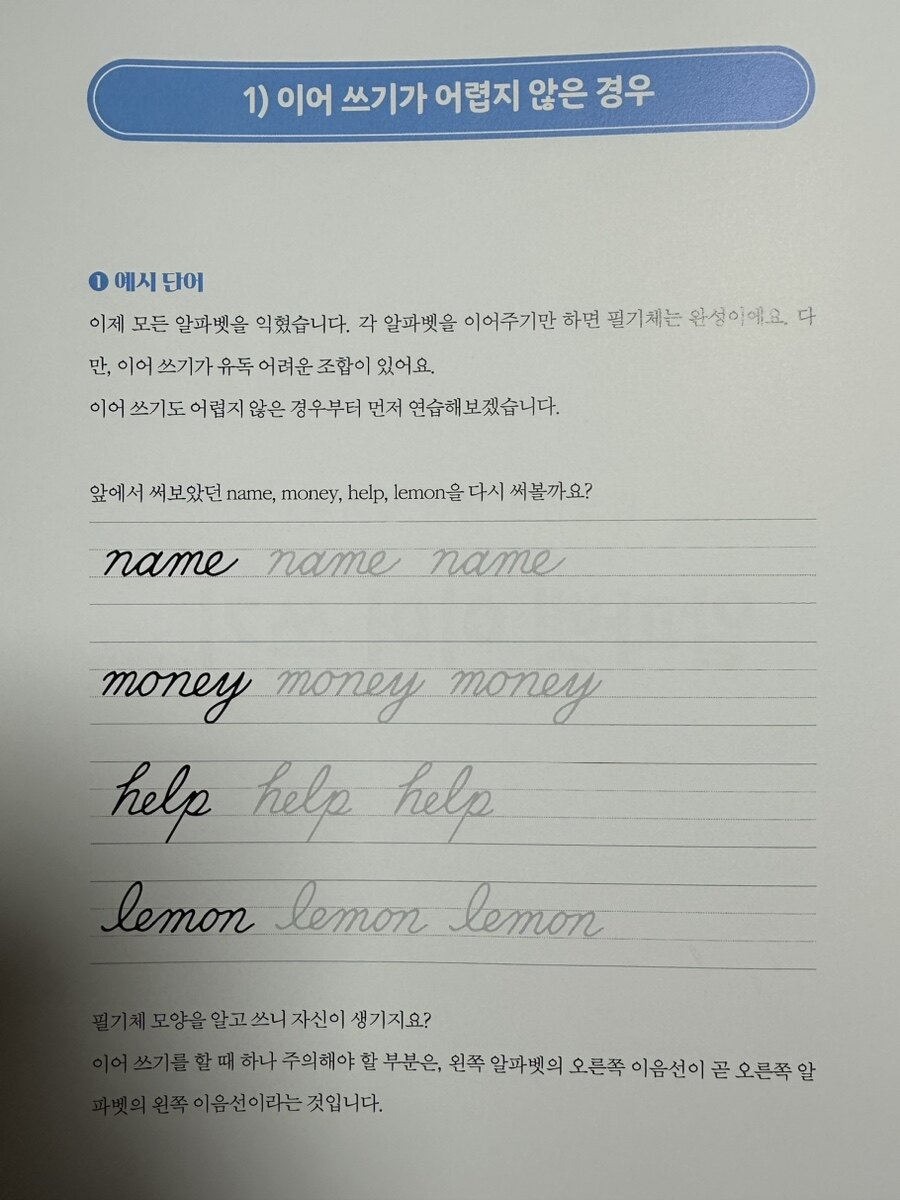 1) 이어 쓰기가 어렵지 않은 경우
❶ 예시 단어
이제 모든 알파벳을 익혔습니다. 각 알파벳을 이어주기만 하면 필기체는 완성이에요. 다
만, 이어 쓰기가 유독 어려운 조합이 있어요.
이어 쓰기도 어렵지 않은 경우부터 먼저 연습해보겠습니다.
앞에서 써보았던 name, money, help, lemon을 다시 써볼까요?
name name name
money money money
help help help
lemon lemon lemon
필기체 모양을 알고 쓰니 자신이 생기지요?
이어 쓰기를 할 때 하나 주의해야 할 부분은, 왼쪽 알파벳의 오른쪽 이음선이 곧 오른쪽 알
파벳의 왼쪽 이음선이라는 것입니다.